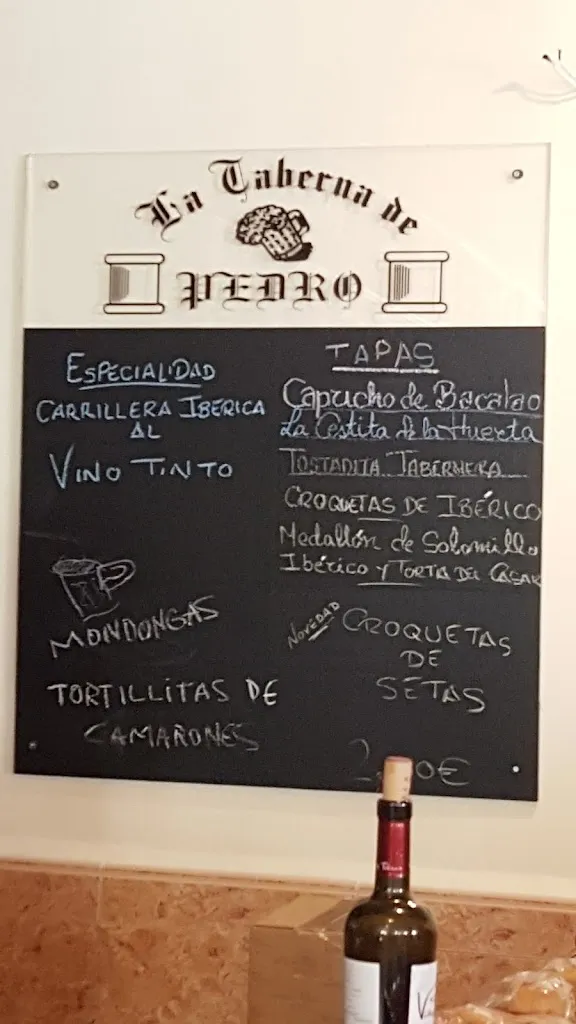 La Taberna de
PEDRO
ESPECIALIDAD
CARRILLERA IBERICA
AL
VINO TINTO
MONDONGAS
TORTILLITAS DE
CAMARONES
TAPAS
Capricho de Bacalao
La Cestita de la Huerta
TOSTADITA TABERNERA
CROQUETAS DE IBÉRICO
Medallón de Solomillo
Ibérico y TORTA DEL CASAR
NOVEDAD
CROQUETAS
DE
SETAS